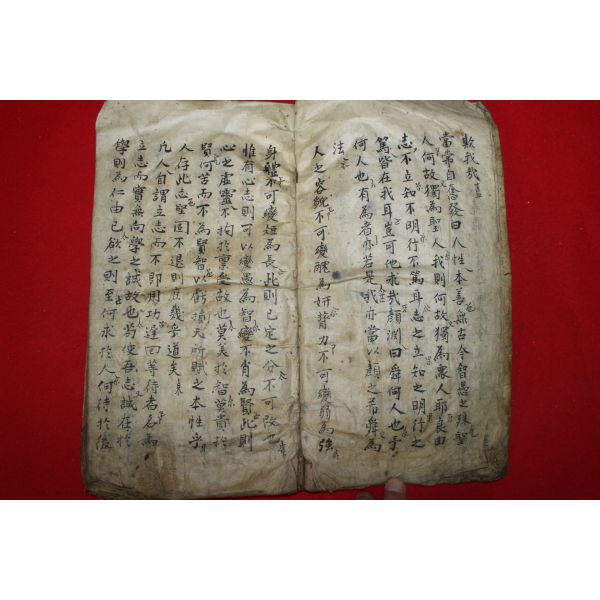 欺我哉
當常自奮發曰人性本善無古今智愚之殊聖
人何故獨為聖人我則何故獨為衆人耶良由
志不立知不明行不篤耳志之立知之明行之
篤皆在我耳豈可他求哉顔淵曰舜何人也予
何人也有為者亦若是我亦當以顔之希舜為
法
人之容貌不可變醜為姸膂力不可變弱為強
身體不可變短為長此則已定之分不可改也
惟有心志則可以變愚為智變不肖為賢此則
心之虛靈不拘於稟受故也莫美於智莫貴於
賢何苦而不為賢智以虧損天所賦之本性乎
人存此志堅固不退則庶幾乎道矣
凡人自謂立志而不即用功遲回等待者名為
立志而實無向學之誠故也苟使吾志誠在於
學則為仁由已欲之則至何求於人何待於後